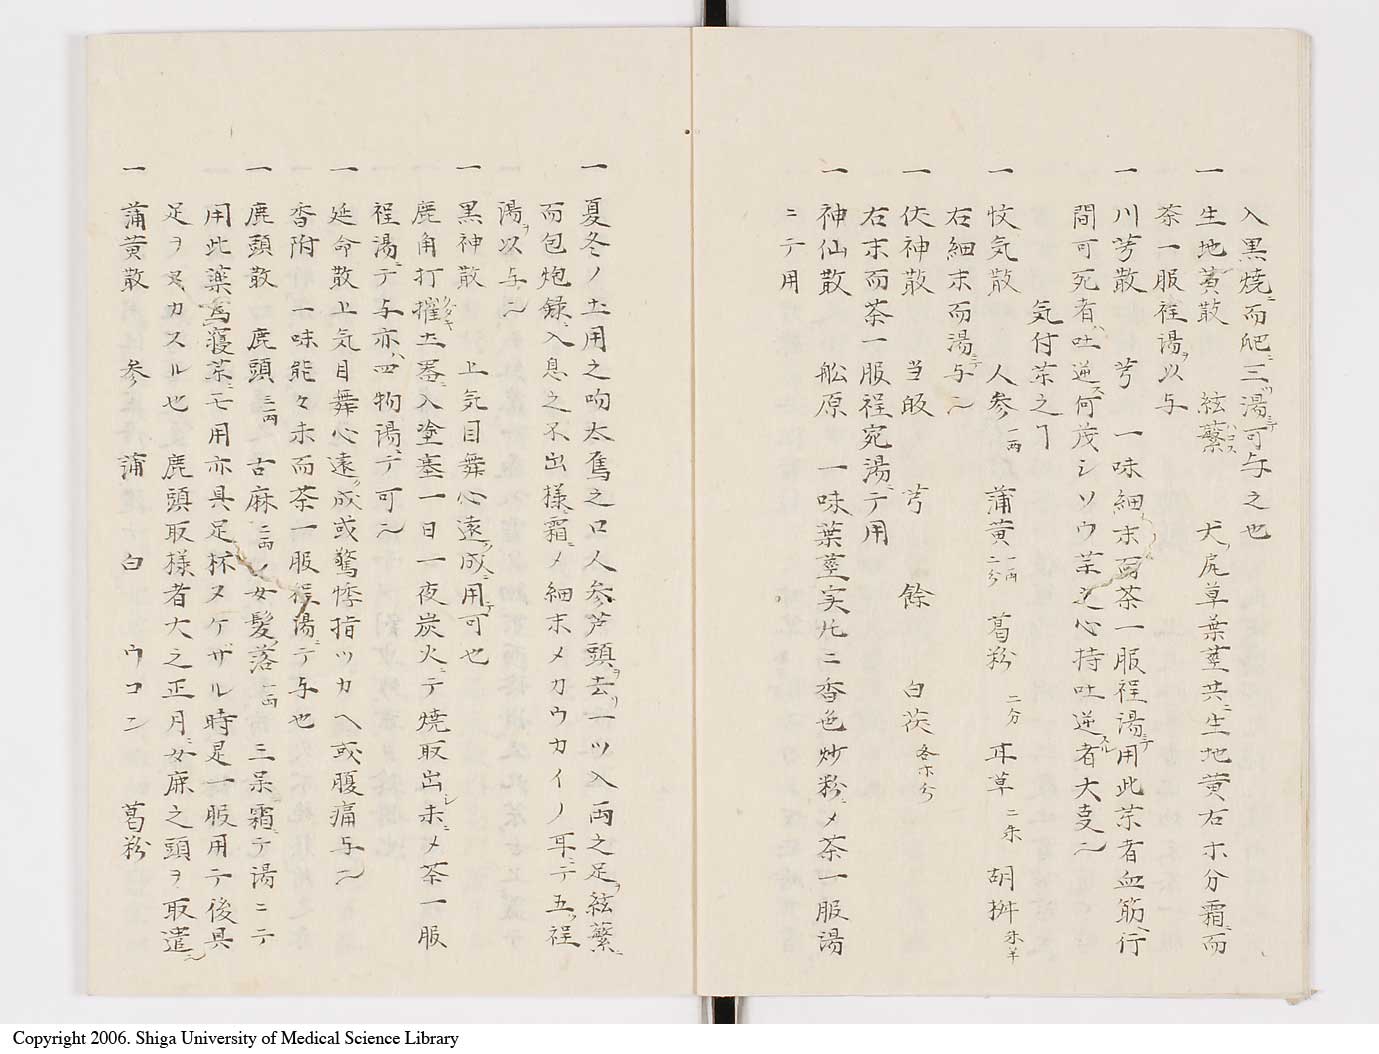 入黒焼ニ而肥ニ三ツ湯ニテ可与之也
一 生地黄散 絃蘩ハコヘス 犬ノ尾草葉茎共ニ生地黄右ホ分霜ニ而
茶一服程湯ヲ以与
一 川芎散 芎 一味細末而茶一服程湯ニテ用此茶者血筋ヘ行
間可死者ハ吐逆ス何茂シソウ茶之心持吐逆スル者大叓ニ
気付茶之
一 快気散 人参一両 蒲黄一両二分 葛粉二分 耳草二朱 胡桝朱半
右細末而湯ニテ与ニ
一 伏神散 当皈 芎 餘 白茨各ホ分
右末而茶一服程宛湯ニテ用
一 神仙散 舩原 一味葉茎実九ニ香色炒粉ニメ茶一服湯
ニテ用
一 夏冬ノ土用之吻太鴈之口人参芦頭ヲ去リ一ツ入両之足ヲ絃蘩ニ
而包炮録ニ入息之不出様ニ霜ニメ細末メカウカイノ耳ニテ五ツ程
湯ヲ以与ニ
一 黒神散 上気目舞心遠ク成ニ用テ可也
鹿角打摧クダキ土器ニ入塗塞一日一夜炭火ニテ焼取出シ末ニメ茶一服
程湯ニテ与亦ハ四物湯ニテ可ニ
一 延命散上気目舞心遠ク成或驚悸指ツカヘ或腹痛与ニ
香附 一味能々末而茶一服程湯ニテ与也
一 鹿頭散 鹿頭三両 古麻二両ノ女髪ノ落一両 三呆霜ニテ湯ニテ
用此薬為寝茶ニモ用亦具足杯ヌケザル時是一服用テ後具
足ヲヌカスル也 鹿頭取様ハ者大之正月ニ女鹿之頭ヲ取遣ニ
一 蒲黄散 参 蒲 白 ウコン 葛粉
Copyright 2006. Shiga University of Medical Science Library